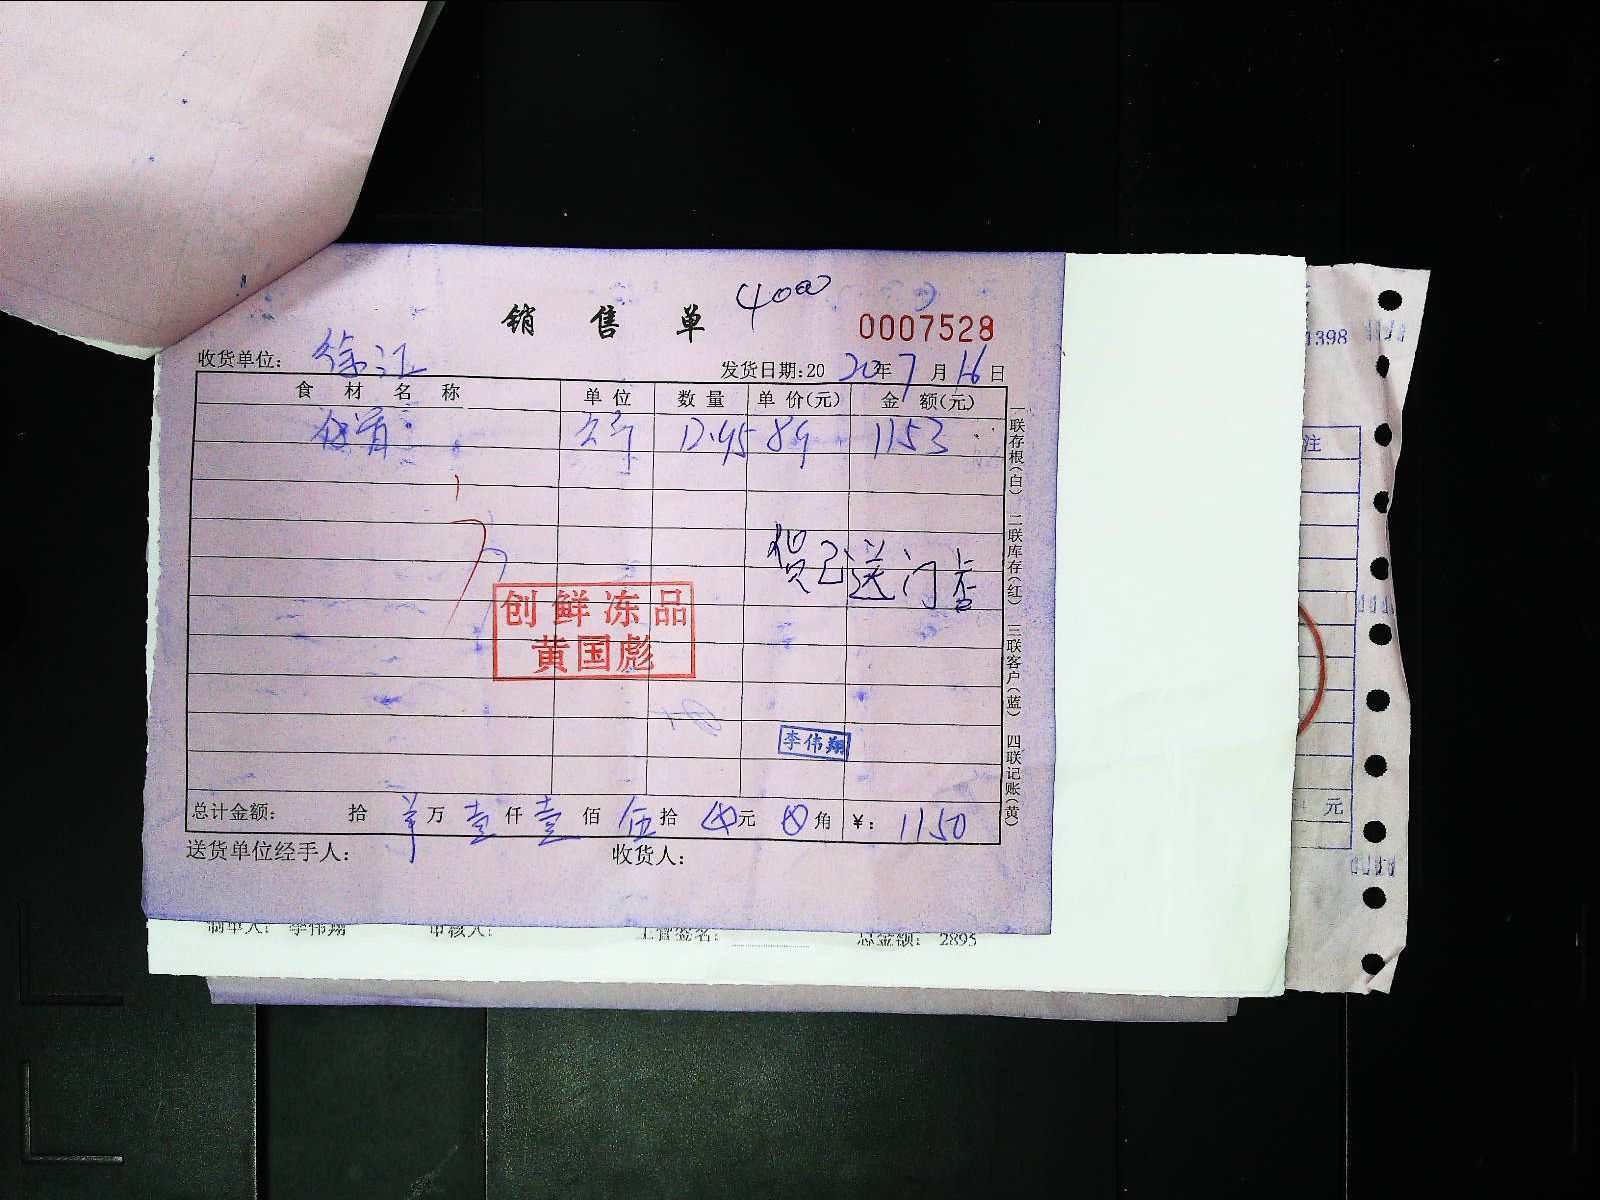 销售单 4000
0007528
收货单位: 徐汇
发货日期:2020年7月16日
食材名称 单位 数量 单价(元) 金额(元)
公斤 12.95 89 1153
货已送门店
创鲜冻品
黄国彪
李伟翔
总计金额: 拾 万壹仟壹佰伍拾0元0角 ¥: 1150
送货单位经手人: 收货人:
一联存根(白) 二联库存(红) 三联客户(蓝) 四联记账(黄)
制单人: 李伟翔 审核人: 主管签名: 总金额: 2895
1398
注
元